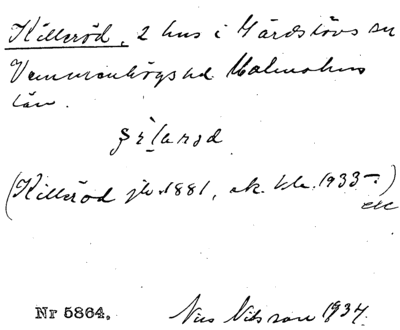 Killeröd, 2 hus i Gärdslövs sn
Vemmenhögs hd Malmöhus
län.
(Killeröd jb. 1881, ek. kk. 1933 –)
etc
Nr 5864. Nils Nilsson 1934.